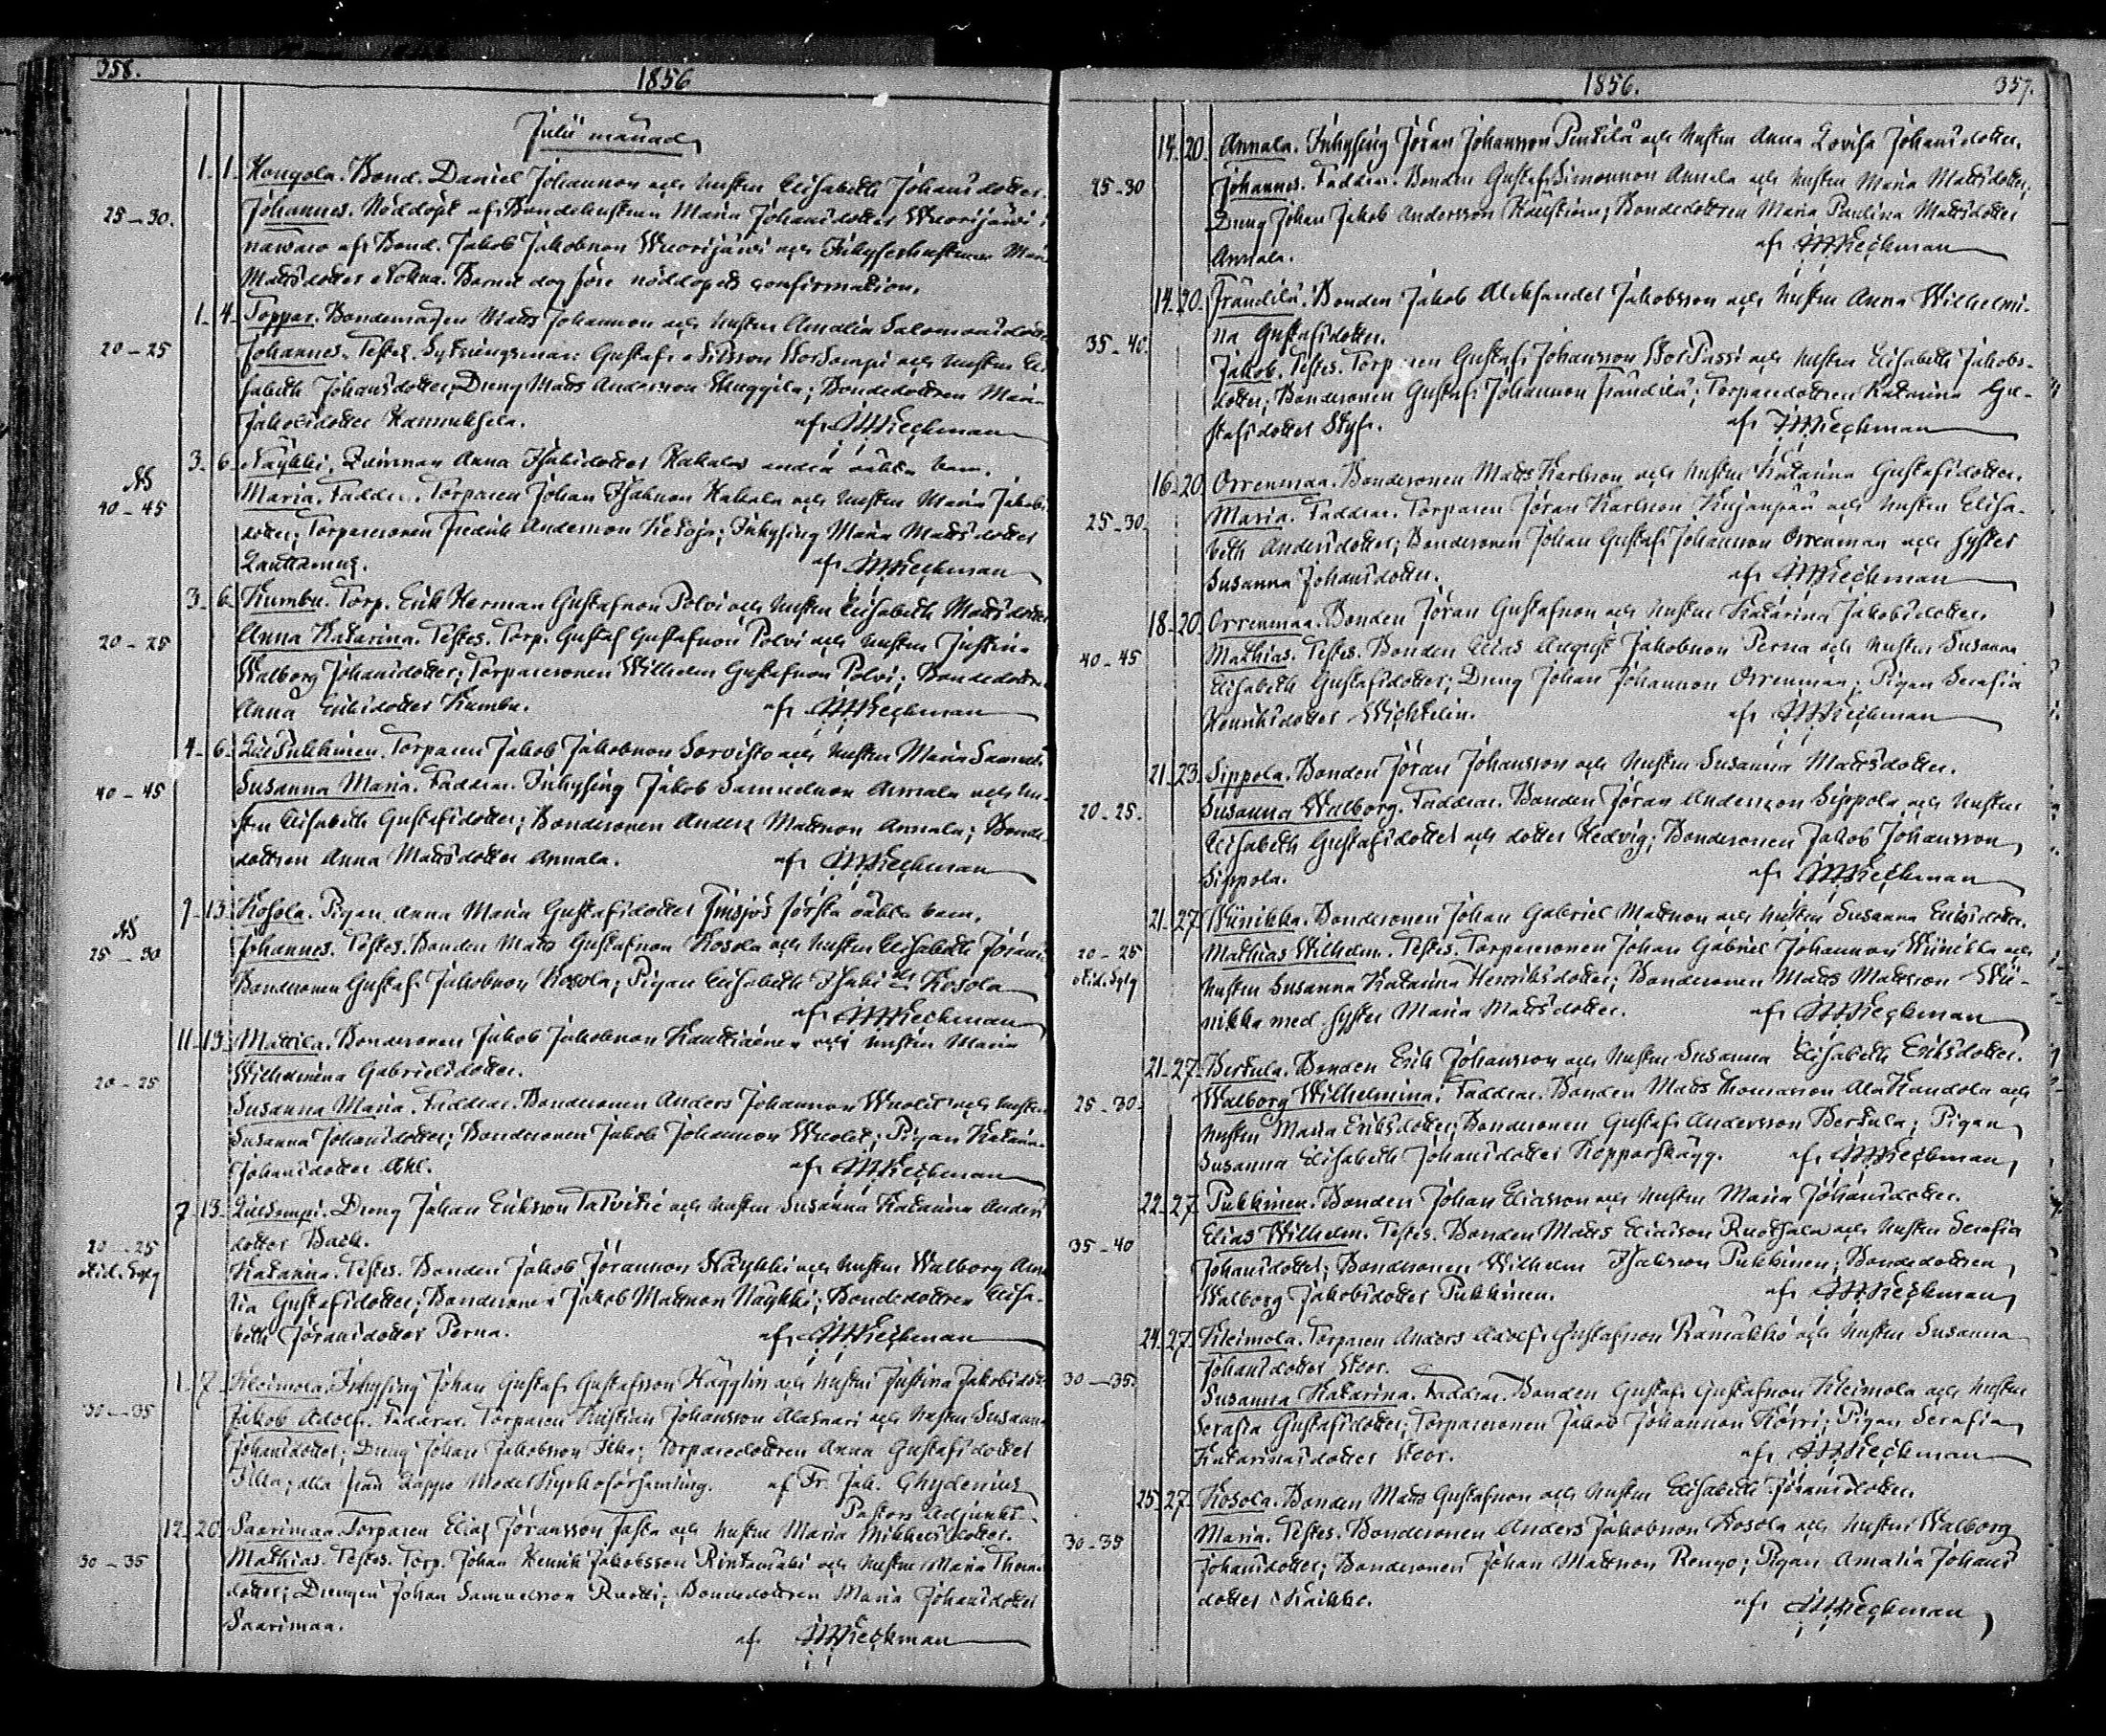 358.
1856
Julii månad
1. 1. Kongola. Bond. Daniel Johansson och hustru Elisabeth Johansdotter.
25-30. Johannes. Nöddöpt af Bondehustrun Maria Johansdotter Wuorijärvi i
närvaro af Bond. Jakob Jakobsson Wuorijärvi och Inhyseshustrun Maria
Mattsdotter. Barnet dog före nöddopets confirmation.
1. 4. Toppar. Bondemågen Matts Johansson och hustru Amalia Salomonsdotter
20-25 Johannes. Testes. Sytningsman Gustaf Nilsson StorSempi och hustru Eli-
sabeth Johansdotter; Dreng Matts Andersson; Bondedottren Maria
Jakobsdotter Kammuksela. af JMWeckman
3. 6. Näykki. Qvinnan Anna Isaksdotter Kakalas andra oäkta barn.
NS
40-45 Maria. Faddrar. Torparen Johan Isaksson Kakala och hustru Maria Jakobs
dotter; Torparesonen Fredrik Andersson Ketoja; Inhysing Maria Mattsdotter
Lauttamus. af JMWeckman
3. 6. Kumbu. Torp. Erik Herman Gustafsson Polvi och hustru Elisabeth Mattsdotter
20-25 Anna Katarina. Testes. Torp. Gustaf Gustafsson Polvi och hustru Justina
Walborg Johansdotter; Torparesonen Wilhelm Gustafsson Polvi; Bondedottren
Anna Eriksdotter Kumbu. af JMWeckman
4. 6. LillPukkinen. Torparen Jakob Jakobsson Sorvisto och hustru Maria Samuels.
40-45 Susanna Maria. Faddrar. Inhysing Jakob Samuelsson Annala och hu-
stru Elisabeth Gustafsdotter; Bondesonen Anders Mattsson Annala; Bonde-
dottren Anna Mattsdotter Annala. af JMWeckman
9. 13. Kosola. Pigan Anna Maria Gustafsdotter första oäkta barn.
NS
25-30 Johannes. Testes. Bonden Matts Gustafsson Kosola och hustru Elisabeth Jörans
Bondesonen Gustaf Jakobsson Kosola; Pigan Elisabeth Isaksdr Kosola
af JMWeckman
11. 13. Mattila. Bondesonen Jakob Jakobsson Kauttiainen och hustru Maria
Wilhelmina Gabrielsdotter.
20-25
Susanna Maria. Faddrar. Bondesonen Anders Johansson Wuolet och hustru
Susanna Johansdotter; Bondesonen Jakob Johansson Wuolet; Pigan Katarina
Johansdotter Ahl. af JMWeckman
7. 13. LillSempi. Dreng Johan Eriksson Talvitie och hustru Susanna Katarina Anders
dotter Back.
20-25
Katarina. Testes. Bonden Jakob Jöransson Näykki och hustru Walborg Ama
lia Gustafsdotter; Bondesonen Jakob Mattsson Näykki; Bondedottren Elisa-
beth Jöransdotter Perna. af JMWeckman
1. 7. Kleimola. Inhysing Johan Gustaf Gustafsson Hägglin och hustru Justina Jakobsdr.
30-35 Jakob Adolf. Faddrar. Torparen Kristian Johansson AlaSaari och hustru Susanna
Johansdotter; Dreng Johan Jakobsson; Torparedottren Anna Gustafsdotter
Filla; alla från Lappo Moderkyrkoförsamling. af Fr. Jak. Chydenius
Pastors Adjunkt.
12. 20. Saarimaa. Torparen Elias Jöransson Taska och hustru Maria Mikkelsdotter.
30-35 Mathias. Testes. Torp. Johan Henrik Jakobsson Rintamäki och hustru Maria Thom.
dotter; Drengen Johan Samuelsson Ruotti; Bondedottren Maria Johansdotter
Saarimaa. af JMWeckman
1856.
357.
14. 20. Annala. Inhysing Jöran Johansson Penttilä och hustru Anna Lovisa Johansdotter.
25-30 Johannes. Faddrar. Bonden Gustaf Simonsson Annala och hustru Maria Mattsdotter;
Dreng Johan Jakob Andersson; Bondedottren Maria Paulina Mattsdotter
Annala. af JMWeckman
14. 20. Frändilä. Bonden Jakob Aleksander Jakobsson och hustru Anna Wilhelmi-
na Gustafsdotter.
35-40.
Jakob. Testes. Torparen Gustaf Johansson StorPassi och hustru Elisabeth Jakobs-
dotter; Bondesonen Gustaf Johansson Frändilä; Torparedottren Katarina Gu-
stafsdotter Styf. af JMWeckman
16. 20. Orrenmaa. Bondesonen Matts Karlsson och hustru Katarina Gustafsdotter.
25-30. Maria. Faddrar. Torparen Jöran Karlsson Kujanpää och hustru Elisa-
beth Andersdotter; Bondesonen Johan Gustaf Johansson Orrenmaa och syster
Susanna Johansdotter. af JMWeckman
18. 20. Orrenmaa. Bonden Jöran Gustafsson och hustru Katarina Jakobsdotter.
40-45 Mathias. Testes. Bonden Elias August Jakobsson Perna och hustru Susanna
Elisabeth Gustafsdotter; Dreng Johan Johansson Orrenmaa; Pigan Serafia
Henriksdotter Wichtelin. af JMWeckman
21. 23. Sippola. Bonden Jöran Johansson och hustru Susanna Mattsdotter.
20-25. Susanna Walborg. Faddrar. Bonden Jöran Andersson Sippola och hustru
Elisabeth Gustafsdotter och dotter Hedvig; Bondesonen Jakob Johansson
Sippola. af JMWeckman
21. 27. Wiinikka. Bondesonen Johan Gabriel Mattsson och hustru Susanna Eriksdotter.
20-25 Mathias Wilhelm. Testes. Torparesonen Johan Gabriel Johansson Wiinikka och
hustru Susanna Katarina Henriksdotter; Bondesonen Matts Mattsson Wii-
nikka med syster Maria Mattsdotter. af JMWeckman
21. 27. Bertula. Bonden Erik Johansson och hustru Susanna Elisabeth Eriksdotter.
25-30. Walborg Wilhelmina. Faddrar. Bonden Matts Thomasson AlaKandola och
hustru Maria Eriksdotter; Bondesonen Gustaf Andersson Bertula; Pigan
Susanna Elisabeth Johansdotter Kopparskägg. af JMWeckman
22. 27. Pukkinen. Bonden Johan Eliasson och hustru Maria Johansdotter.
35-40 Elias Wilhelm. Testes. Bonden Matts Eliasson Ruotsala och hustru Serafia
Johansdotter; Bondesonen Wilhelm Isaksson Pukkinen; Bondedottren
Walborg Jakobsdotter Pukkinen. af JMWeckman
24. 27. Kleimola. Torparen Anders Adolf Gustafsson Rämäkkö och hustru Susanna
Johansdotter Stoor.
30-35.
Susanna Katarina. Faddrar. Bonden Gustaf Gustafsson Kleimola och hustru
Serafia Gustafsdotter; Torparesonen Jakob Johansson Körri; Pigan Serafia
Katarinasdotter Stoor. af JMWeckman
25. 27. Kosola. Bonden Matts Gustafsson och hustru Elisabeth Jöransdotter.
30-35 Maria. Testes. Bondesonen Anders Jakobsson Kosola och hustru Walborg
Johansdotter; Bondesonen Johan Mattsson Rengo; Pigan Amalia Johans
dotter Kaikko. af JMWeckman